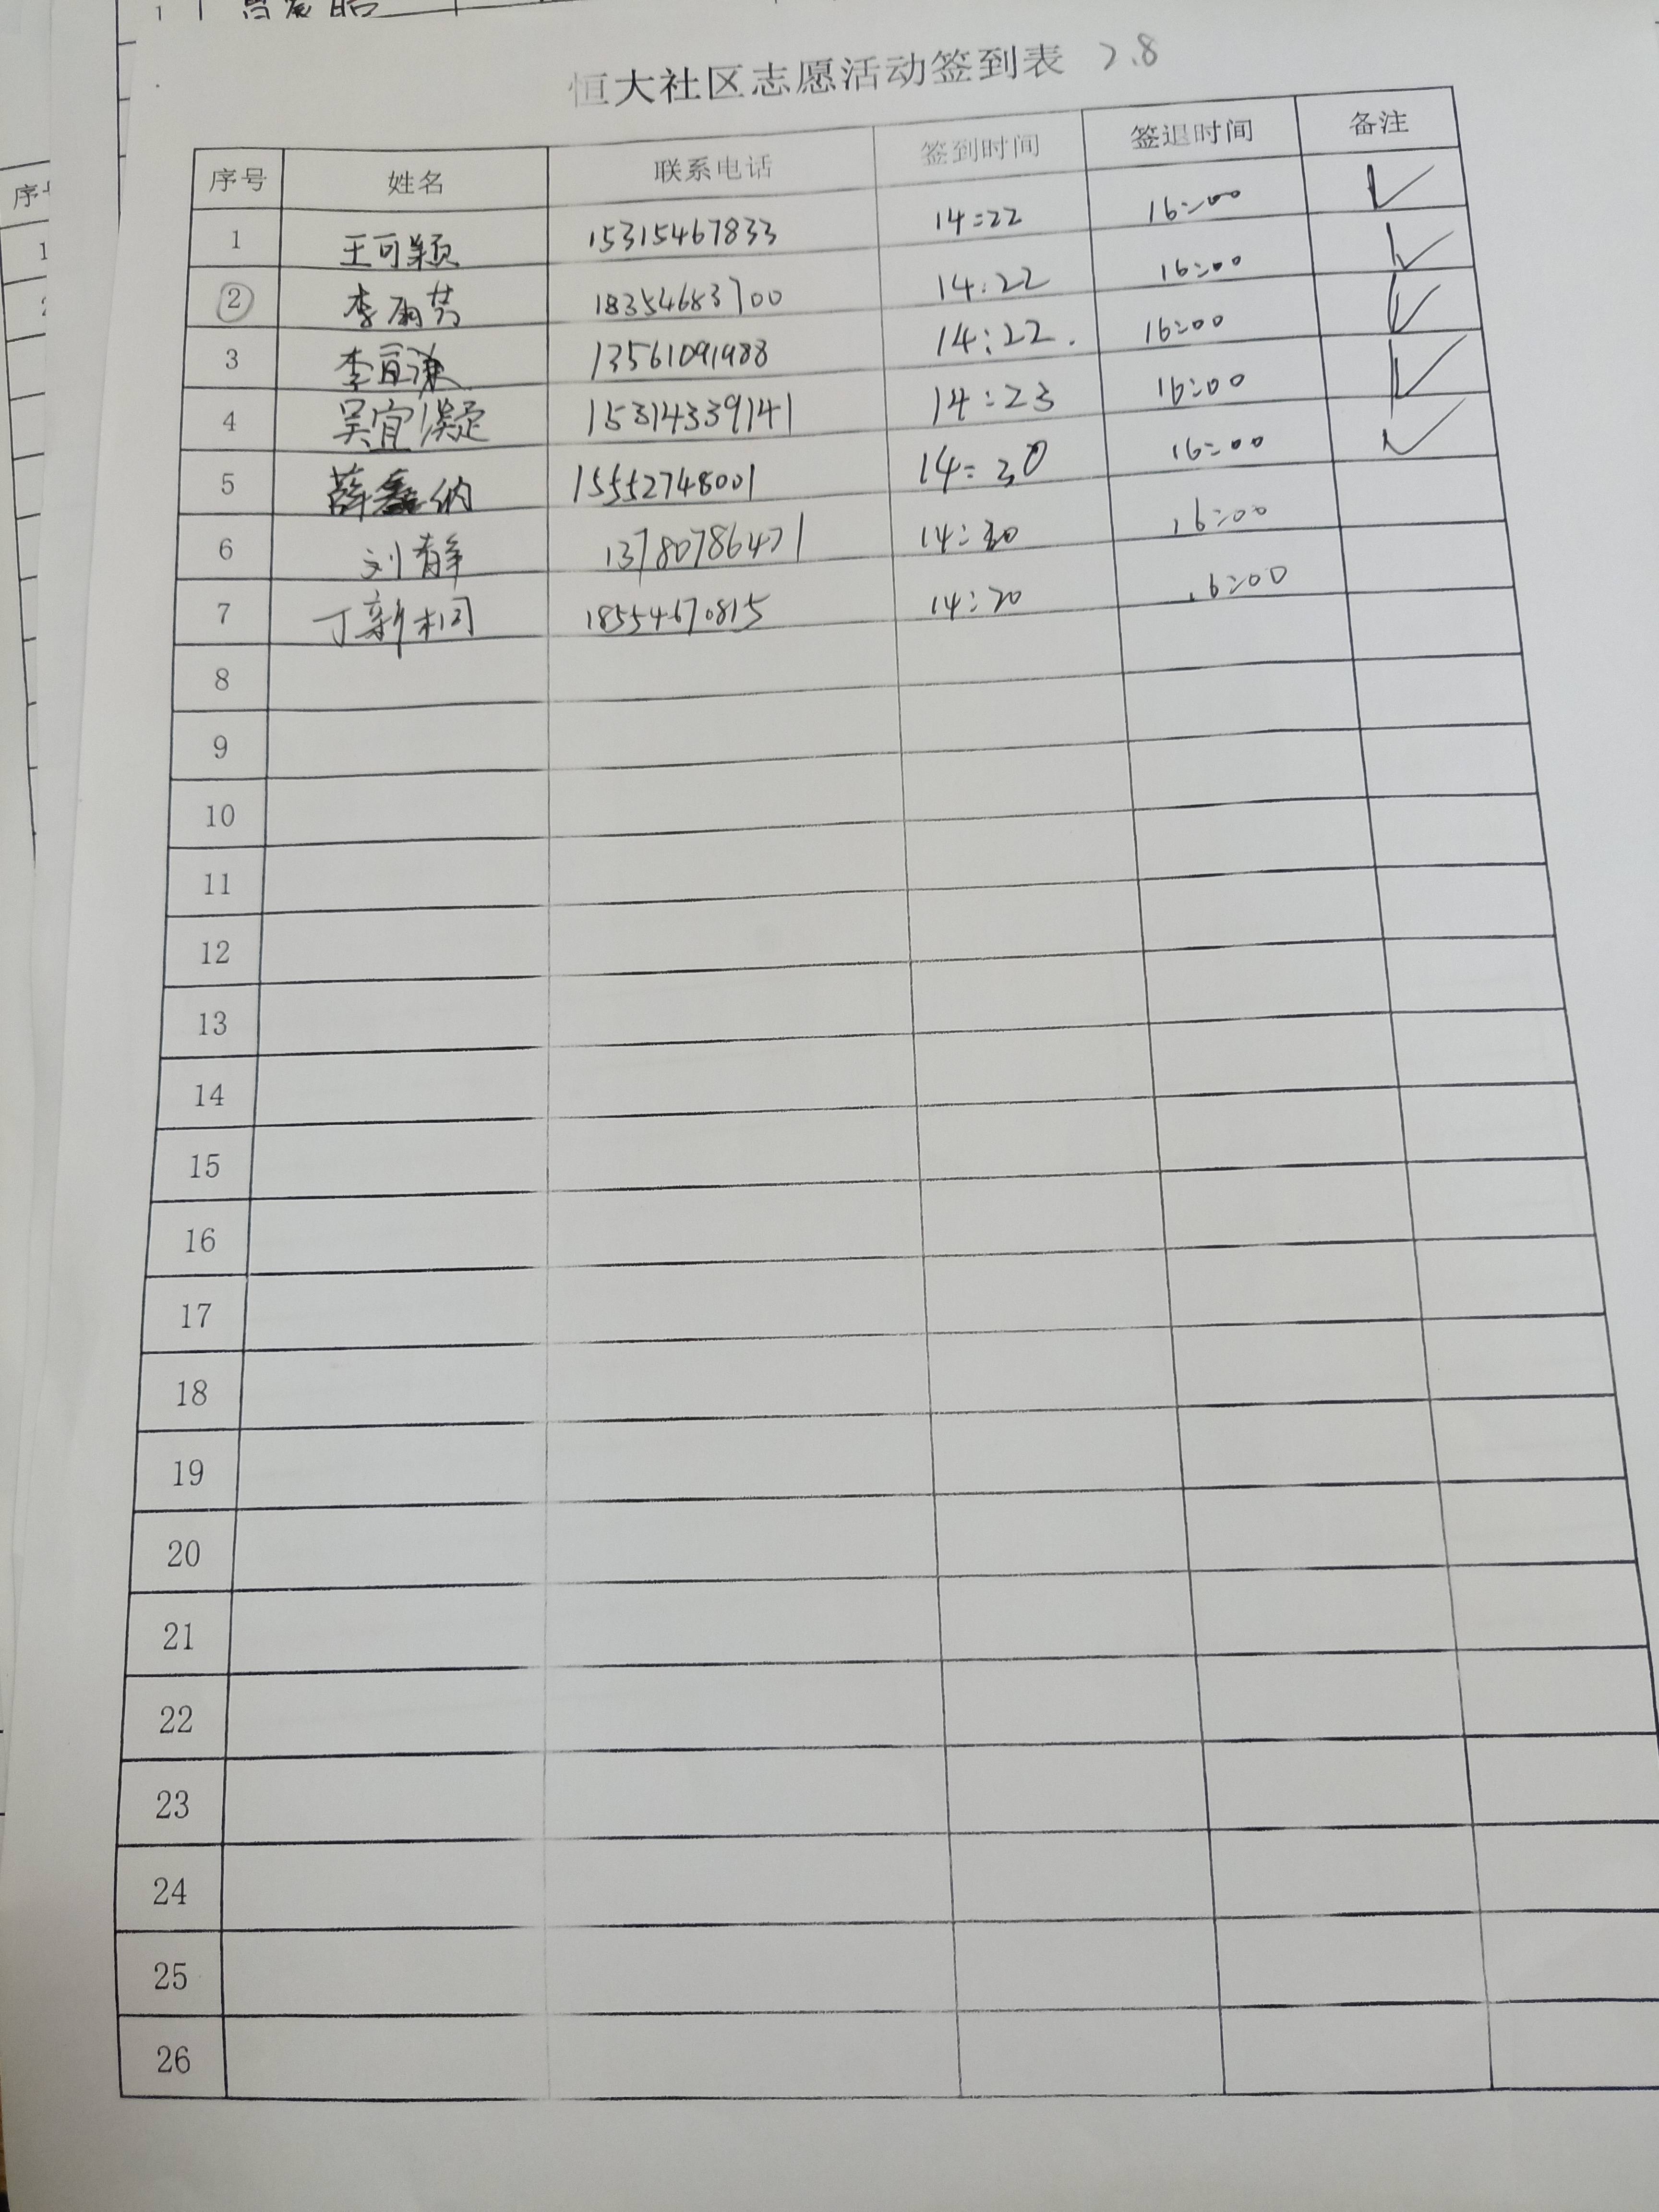 恒大社区志愿活动签到表 7.8
序号 姓名 联系电话 签到时间 签退时间 备注
1 王可颖 15315467833 14:22 16:00 ✓
2 李雨芸 18354683700 14:22 16:00 ✓
3 李宜谦 13561091988 14:22. 16:00 ✓
4 吴宜凝 15314339141 14:23 16:00 ✓
5 薛鑫纳 15552748001 14:30 16:00 ✓
6 刘静 13780786471 14:30 16:00
7 丁新桐 18554670815 14:20 16:00
8
9
10
11
12
13
14
15
16
17
18
19
20
21
22
23
24
25
26